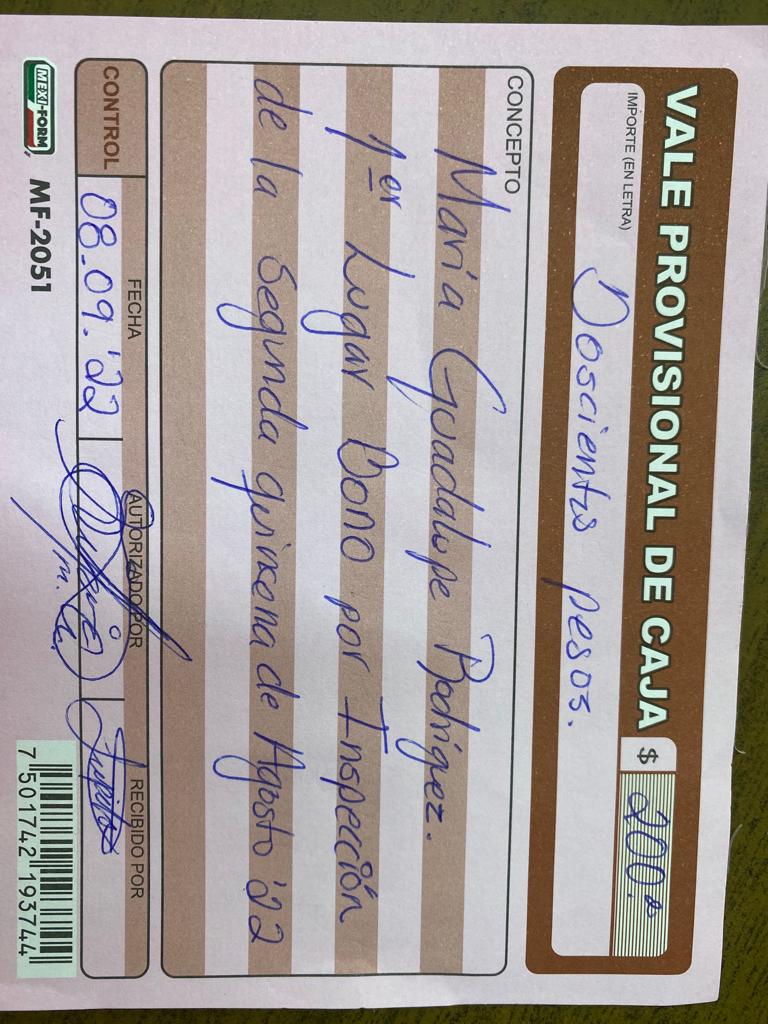 VALE PROVISIONAL DE CAJA $ 200.00
IMPORTE (EN LETRA) Doscientos pesos.
CONCEPTO
María Guadalupe Rodríguez.
1er Lugar Bono por Inspección
de la Segunda quinsena de Agosto '22
CONTROL
FECHA AUTORIZADO POR RECIBIDO POR
08.09.'22
MEXI-FORM MF-2051
7 501742 193744